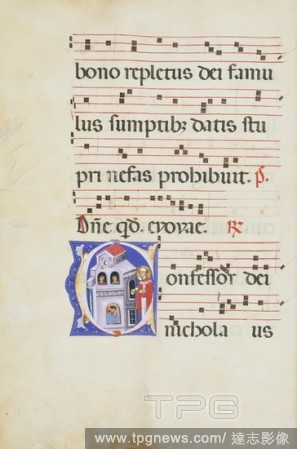 bono repletus dei famu
lus sumptibz datis stu
pri nefas prohibuit. P.
Dñe qd. evovae. R
Confessor dei
nichola us
TPG
www.tpgnews.com/ 達志影像